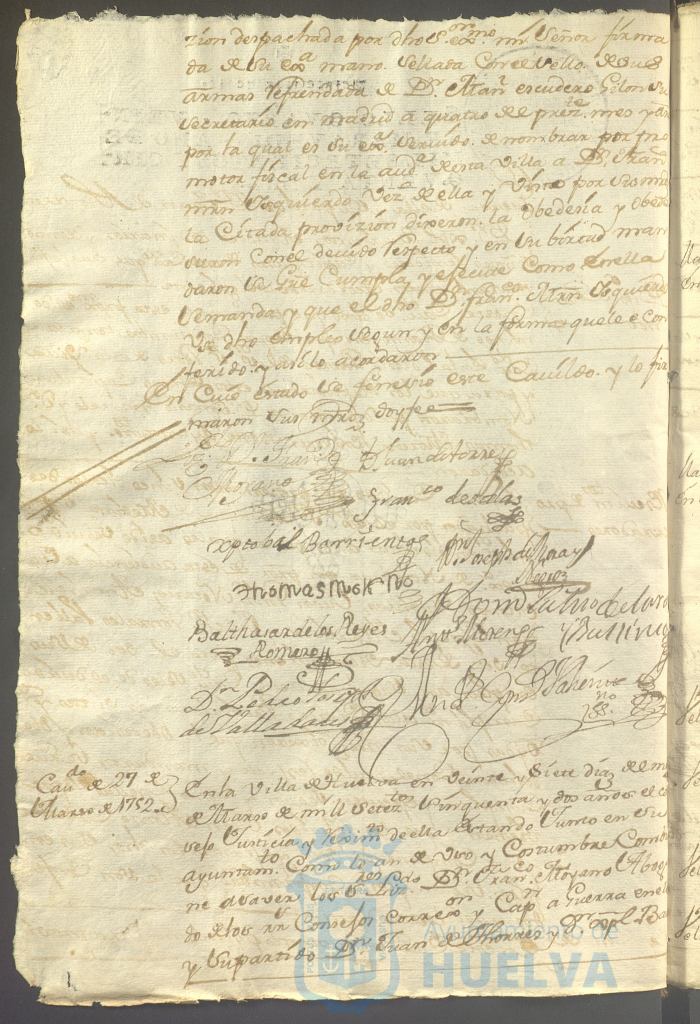 zion despachada por dho S.r ex.mo mi Señor firma
da de su ex.a mano. sellada Con el sello de sus
armas Refrendada de D.n Man.l escudero Gilon su
secretario en madrid a quatro del pres.te mes y añ
por la qual es su ex.a servido de nombrar por pro
motor fiscal en la aud.a de esta villa a D.n Fran.co
mrn Ysquierdo Vez.o de ella y Vista por sus mrds
la Citada provizion dixeron la obedecia y obede
sieron Con el devido Respecto y en su birtud man
daron se Gue Cumpla y execute Como en ella
se manda y que el dho D.n fran.co Mrn Ysquierdo
Vse dho empleo segun y en la forma que le e con
tenido y asi lo acordaron
En Cuio estado se fenesio este Cavildo y lo fir
maron sus mrds doy fee
Moyano
Juan de torres
Fran.co de Salas
xptobal Barrientos
Joseph de
thomas
Balthasar de los Reyes
Romero
Ant.o Moreno
D.n Pedro
de Valladares
Cav.do de 27 de
Marzo de 1752
En la Villa de Huelva en Veinte y Siete dias de m
de Marzo de mill setez.tos Sinquenta y dos años el co
sejo Justicia y Reximi.to de ella estando Junto en su
ayuntam.to Como lo an de Vso y Costumbre Combi
ne a saver los S.res Lizdo D.n Fran.co Moyano Aboga
do de los R.s Consejos Correx.or y Cap.n a Guerra en ell
y su partido D.n Juan de thorres y D.n xpl Ba
Ayuntamiento de
HUELVA